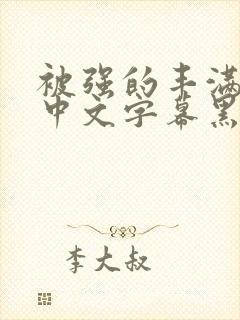 被强的丰满
中文字幕黑
李大叔